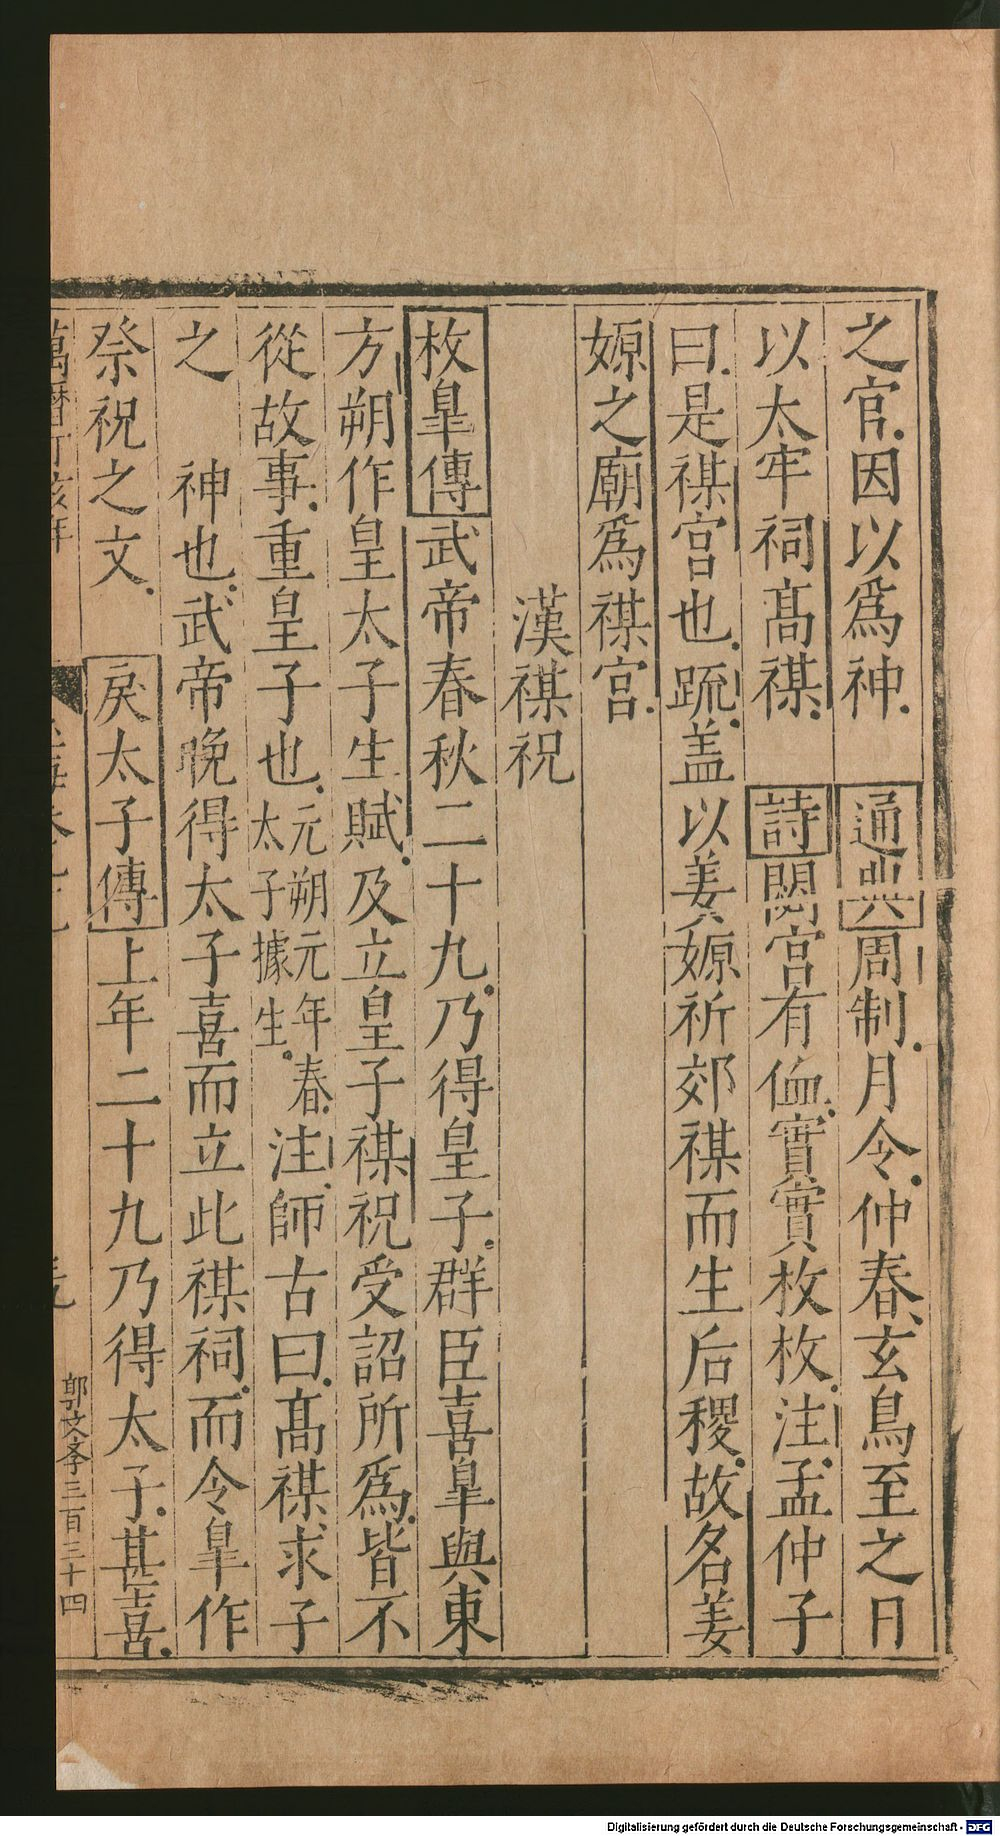 之官因以爲神 通典周制月令仲春玄鳥至之日
以太牢祠髙禖 詩閟宮有侐實實枚枚注孟仲子
曰是禖宮也䟽盖以姜嫄祈郊禖而生后稷故名姜
嫄之廟爲禖宮
漢禖祝
枚臯傳武帝春秋二十九乃得皇子群臣喜臯與東
方朔作皇太子生賦及立皇子禖祝受詔所爲皆不
從故事重皇子也元朔元年春太子據生注師古曰髙禖求子
之 神也武帝晚得太子喜而立此禖祠而令臯作
祭祝之文 戾太子傳上年二十九乃得太子甚喜
萬曆丁亥年
郭文李三百三十四
Digitalisierung gefördert durch die Deutsche Forschungsgemeinschaft - DFG